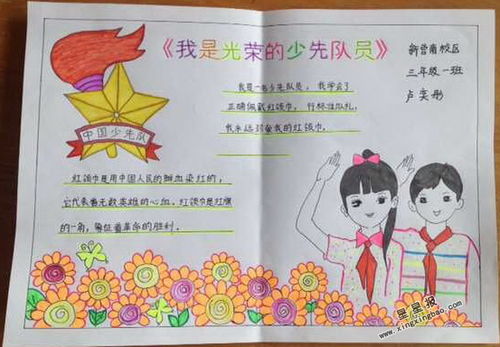 《我是光荣的少先队员》
新营南校区
三年级一班
卢奕彤
中国少先队
我是一名少先队员，我学会了
正确佩戴红领巾，行标准队礼，
我永远珍爱我的红领巾。
红领巾是用中国人民的鲜血染红的，
它代表着无数英雄的心血。红领巾是红旗
的一角，象征着革命的胜利。
星星报
www.xingxingbao.com